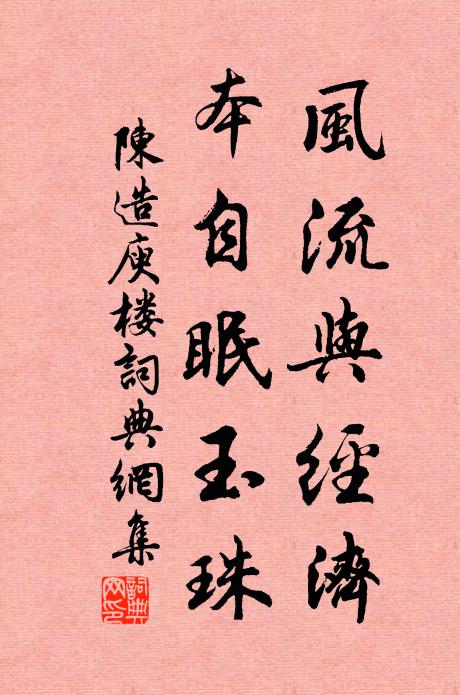 風流與經濟
本自眠玉珠
陳造庾楼詞典網集
詞典网印